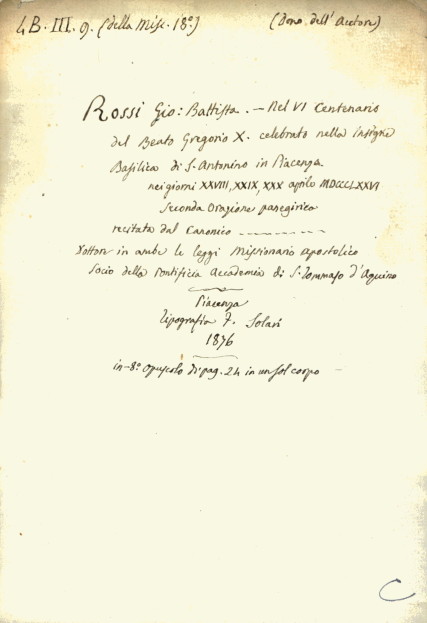 4 B. III. 9. (della Misc. 18º) (Dono dell'Autore)
Rossi Gio: Battista. — Nel VI Centenario
del Beato Gregorio X. celebrato nella Insigne
Basilica di S. Antonino in Piacenza
nei giorni XXVIII, XXIX, XXX aprile MDCCCLXXVI
Seconda Orazione panegirica
recitata dal Canonico
Dottore in ambe le leggi Missionario apostolico
Socio della Pontificia Accademia di S. Tommaso d'Aquino
Piacenza
Tipografia F. Solari
1876
in-8º opuscolo di pag. 24 in un sol corpo
C